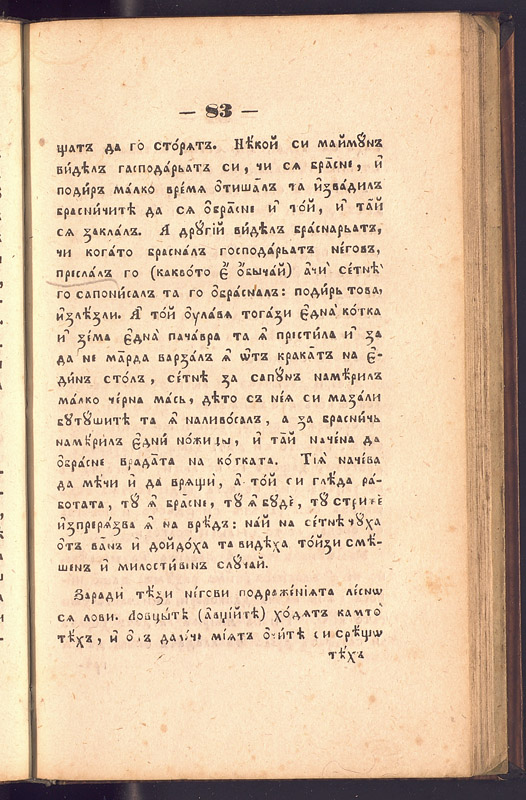 — 83 —
щатъ да го сто́рятъ. Нѣ́кой си маймꙋ́нъ
ви́дѣлъ гаспода́рьатъ си, чи ся бра́сне, и҆
поди́ръ ма́лко вре́мя ѻ҆тиша́лъ та и҆зва́дилъ
брасни́читѣ да ся ѻ҆бра́сне и҆ то́й, и҆ та́й
ся закла́лъ. А҆ дрꙋгі́й ви́дѣлъ бра́снарьатъ,
чи кога́то брасна́лъ господа́рьатъ не́говъ,
пресла́лъ го (какво́то є҆ ѻ҆бы́чай) а҆чи̏ се́тнѣ
го сапони́салъ та го ѻ҆бра́сналъ: поди́ръ това̀,
и҆зле́зли. А҆ то́й ѹ҆лавя тога́зи є҆дна̀ ко́тка
и҆ зе́ма є҆дна̀ пача́вра та ѧ҆ прести́ла и҆ за
да не ма́рда варза́лъ ѧ҆ ѿтъ крака́тъ на є҆-
ди́нъ сто́лъ, се́тнѣ за сапꙋ́нъ намѣ́рилъ
ма́лко че́рна ма́съ, дѣ́то съ не́я си ма́зали
бутꙋшитѣ та ѧ҆ наливо́салъ, а за брасни́чь
намѣ́рилъ є҆дни́ но́жицы, и҆ та́й наче́на да
ѻ҆бра́сне врада́та на ко́тката. Тіѧ̀ наче́ва
да мѣ́чи и҆ да врящи, а҆ то́й си глѣ́да ра́-
ботата, тꙋ̀ ѧ҆ бра́сне, тꙋ̀ ѧ҆ бꙋдѐ, тꙋ̀ стриже
и҆зпреря́зва ѧ҆ на врѣ́дъ: на́й на се́тнѣ чꙋ́ха
ѻ҆тъ ва́нъ и҆ дойдо́ха та видѣ́ха то́йзи смѣ́-
шенъ и҆ милости́винъ слꙋ́чай.
Заради̏ тѣ́зи не́гови подраже́ніята ле́сно
ся лови. Ловцы́тѣ (а҆вціи́тѣ) хо́дятъ камто̏
тѣ́хъ, и҆ міятъ ѻ҆чи́тѣ си срѣ́щѡ
тѣ́хъ